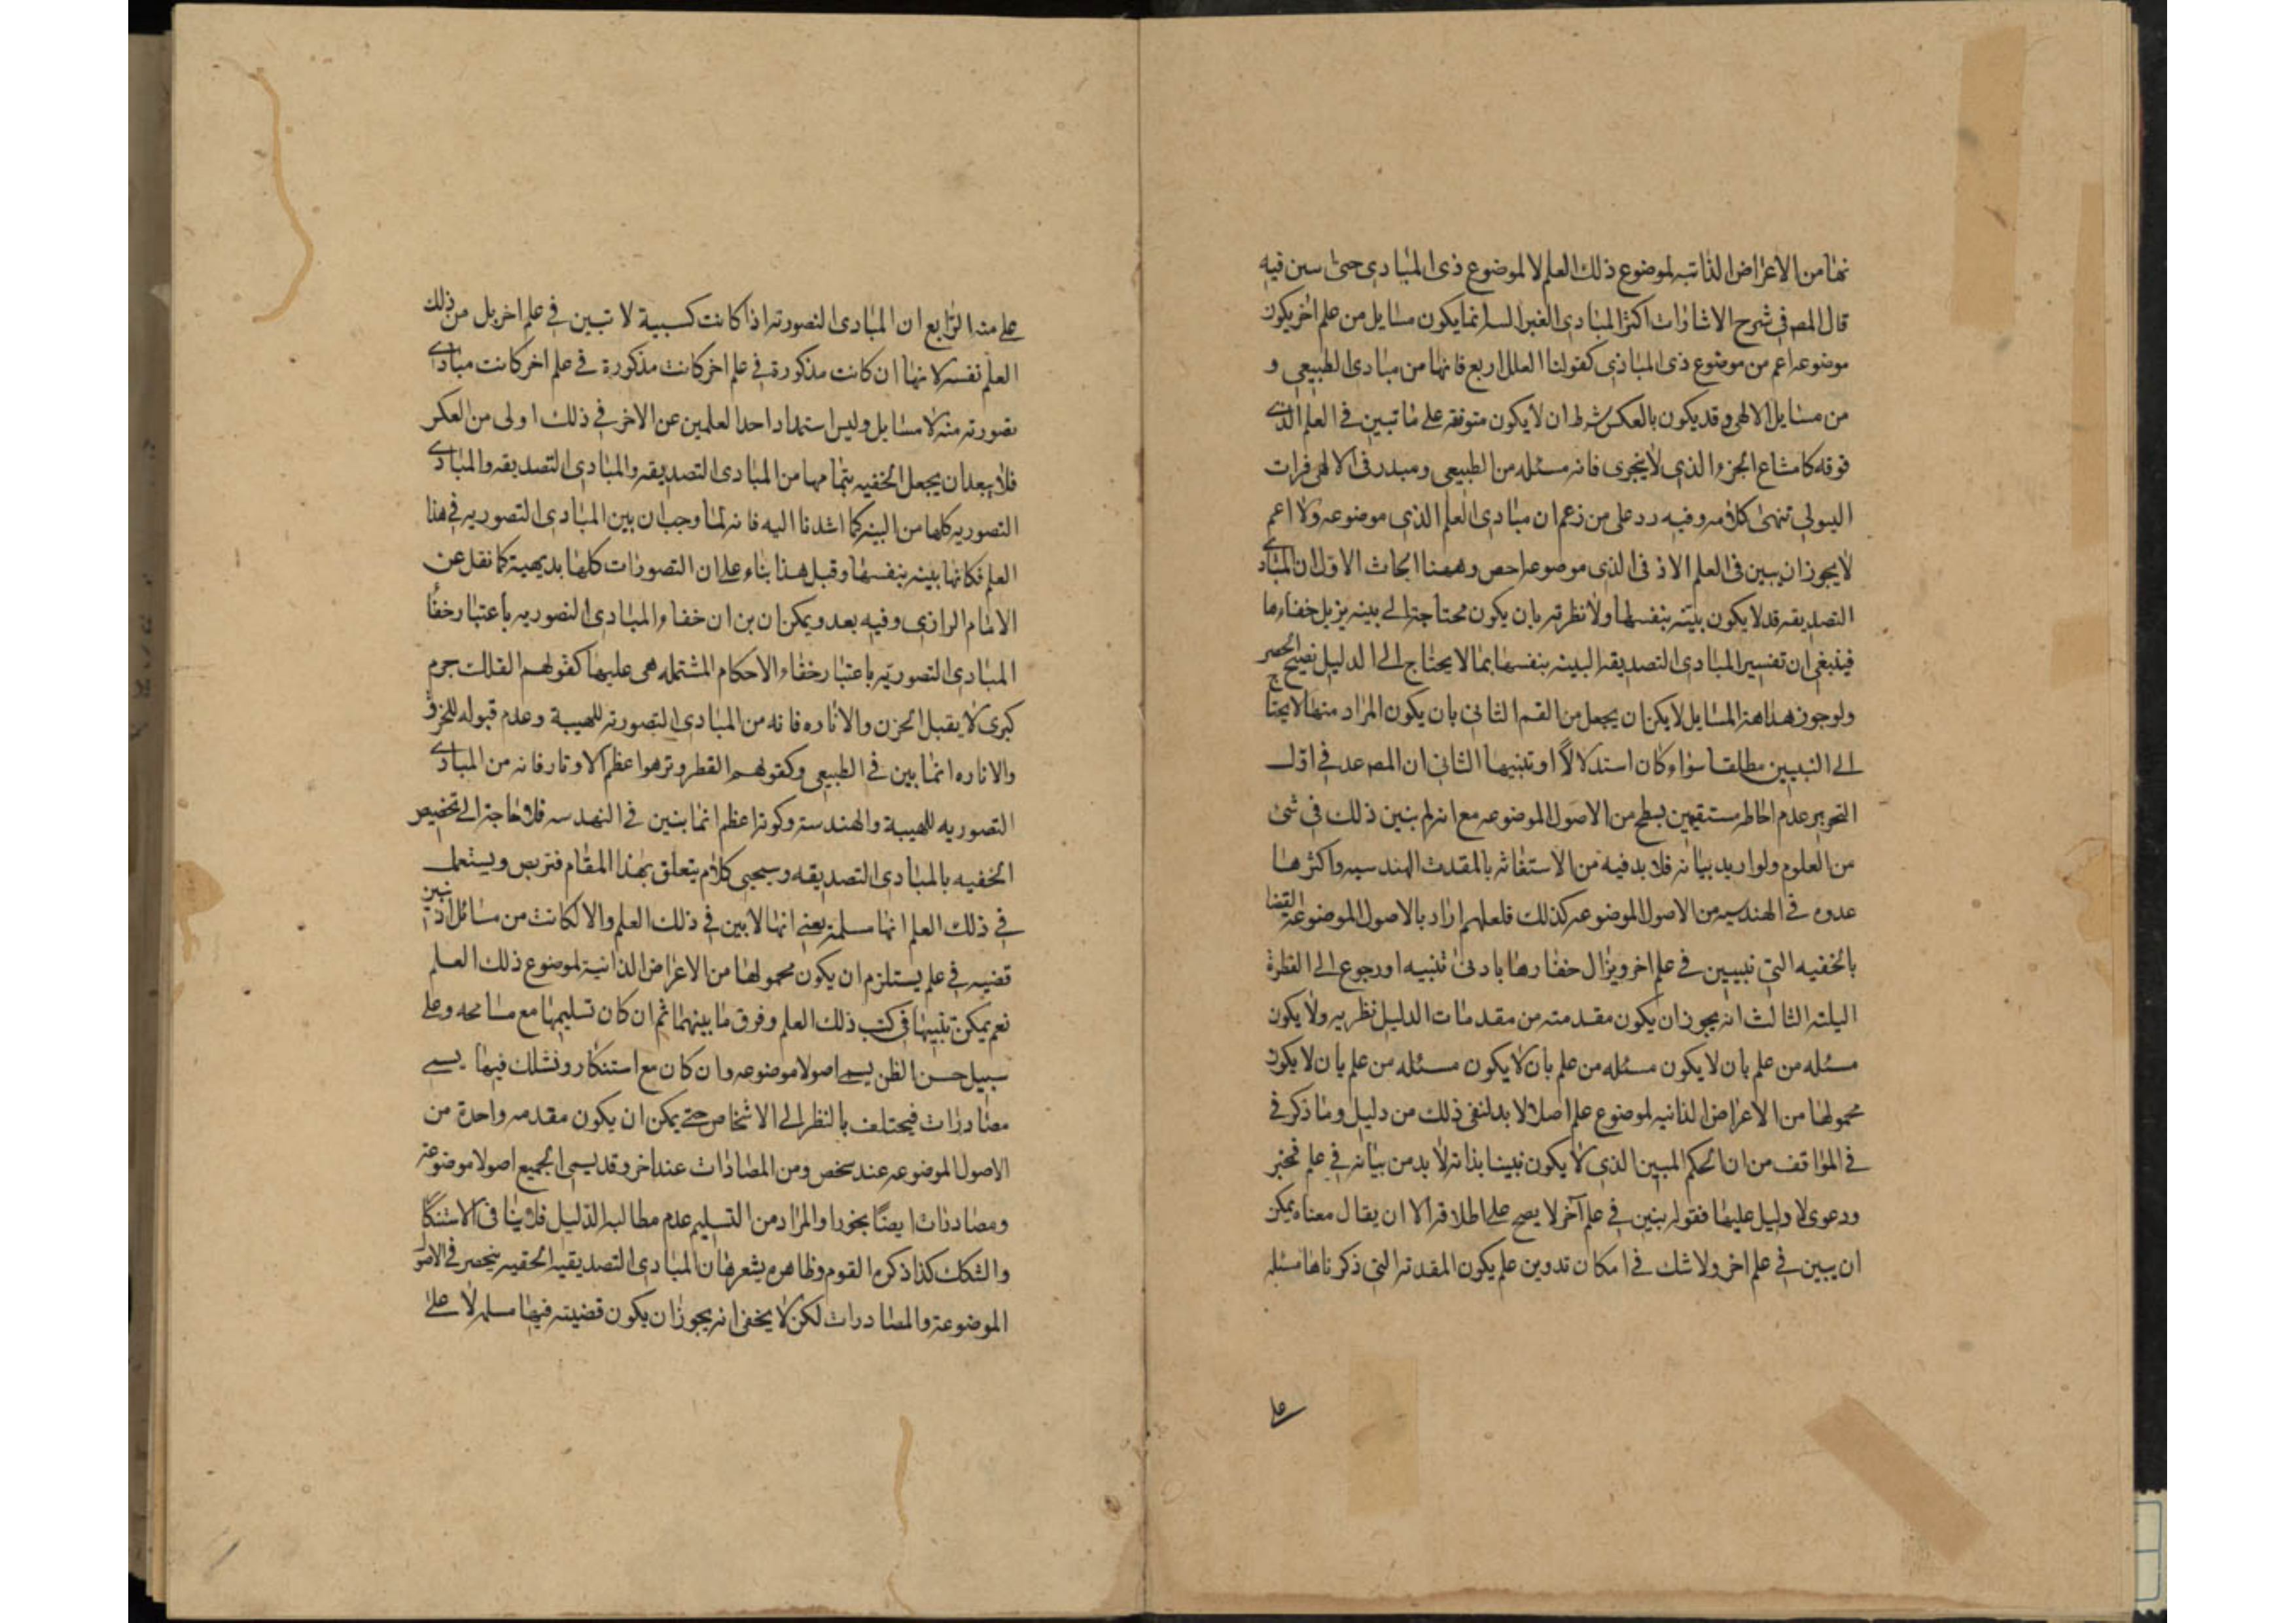 نها من الاعراض الذاتیه لموضوع ذلك العلم لا لموضوع ذی المبادی حتی سین فیه
قال المص فی شرح الاشارات اکثر المبادی الغیر السا انما یکون مسایل من علم اخر یکون
موضوعه اعم من موضوع ذی المبادی کقولنا العلل اربع فانها من مبادی الطبیعی و
من مسایل الالهی وقد یکون بالعکس بشرط ان لا یکون متوقفه علی ما تبین فی العلم الذی
فوقه کامتناع الجزء الذی لا یتجزی فانه مسئله من الطبیعی ومبدر فی الالهی
الیبولی تنهی کلامه وفیه رد علی من زعم ان مبادی العلم الذی موضوعه ولا اعم
لا یجوز ان یبین فی العلم الاذنی الذی موضوعه احص وههنا ابحاث الاول ان المبادی
التصدیقه قد لا یکون بینة بنفسها ولا نظریه بان یکون محتاجة الی بینه یزیل خفاء ما
فینبغی ان تفسیر المبادی التصدیقه البینه بنفسها بما لا یحتاج الی الدلیل نصیح الحصر
ولوجوز هذا هذ المسایل لا یکن ان یجعل من القسم الثانی بان یکون المراد منها لا یحتاج
الی التبیین مطلقا سواء کان استدلالًا او تنبیها الثانی ان المص عد فی اول
التحریر عدم احاطه مستقیمین بسطح من الاصول الموضوعه مع انه لم یبین ذلك فی شئ
من العلوم ولو ارید بیانه فلا بد فیه من الاستغاثه بالمقدت الهندسیه واکثرها
عدوه فی الهندسیه من الاصول الموضوعه کذلك فلعلهم اراد بالاصول الموضوعة القضا
بالخفیه التی تبیین فی علم اخر ویزال خفارها بادنی تنبیه او رجوع الی الفطرة
الیلته الثالث انه یجوز ان یکون مقدمته من مقدمات الدلیل نظریه ولا یکون
مسئله من علم بان لا یکون مسئله من علم بان لا یکون مسئله من علم بان لا یکون
محمولها من الاعراض الذاتیه لموضوع علم اصلا لا بد لنفی ذلك من دلیل وما ذکر فی
فی المواقف من ان الحکم المبین الذی لا یکون نبینا بذاته لا بد من بیانه فی علم فخبر
ودعوی لا دلیل علیها فقوله یبنین فی علم آخر لا یصح علی اطلاقه الا ان یقال معناه یمکن
ان یبین فی علم اخر ولا شك فی امکان تدوین علم یکون المقدته التی ذکرناها مسئله
علی
علی منه الرابع ان المبادی التصوریه اذا کانت کسبیة لا تبین فی علم اخر بل من ذلك
العلم نفسه لانها ان کانت مذکورة فی علم اخر کانت مذکورة فی علم اخر کانت مبادی
تصوریه منه لا مسایل ولیس استمداد احد العلمین عن الاخر فی ذلك اولی من العکر
فلا یبعد ان یجعل الخفیه بتمامها من المبادی التصدیقه والمبادی التصدیقه والمبادی
التصوریه کلها من البینه کما اشدنا الیه فانه لما وجب ان بین المبادی التصوریه فی هذا
العلم فکانها بینه بنفسها وقیل هذا بناء علی ان التصورات کلها بدیهیة کما نقل عن
الامام الرازی وفیه بعد ویمکن ان بن ان خفاء المبادی التصوریه باعتبار خفأ
المبادی التصوریه باعتبار خفاء الاحکام المشتمله هی علیها کقولهم الفلك جرم
کری لا یقبل الحزن والاناره فانه من المبادی التصوریه للهیبة وعدم قبوله للخرق
والاناره انما بین فی الطبیعی وکقولهم القطر وتر هو اعظم الاوتار فانه من المبادی
التصوریه للهیبة والهندسة وکونه اعظم انما بنین فی النهدسه فلا حاجة الی تخصیص
الخفیه بالمبادی التصدیقه وسیجی کلام یتعلق بهذا المقام فتربص ویستعمل
فی ذلك العلم انها مسلمة یعنی انها لا بین فی ذلك العلم والا لکانت من مسائل اذ
قضیه فی علم یستلزم ان یکون محمولها من الاعراض الذانیة لموضوع ذلك العلم
نعم یمکن تنبیها فی کتب ذلك العلم وفرق ما بینهما ثم ان کان تسلیمها مع مسامحه وعلی
سبیل حسن الظن یسمی اصولا موضوعه وان کان مع استنکار وتشکك فیها یسمی
مصادرات فیختلف بالنظر الی الاشخاص حتی یمکن ان یکون مقدمه واحدة من
الاصول الموضوعه عند سخص ومن المصادات عند اخر وقد یسمی الجمیع اصولا موضوعة
ومصادرات ایصًا بجوزا والمراد من التسلیم عدم مطالبه الدلیل فلا ینا فی الاستنکا
والشکك کذا ذکره القوم وظاهره یشعر بان المبادی التصدیقیه الخفیه ینحصر فی الامول
الموضوعة والمصادرات لکن لا یخفی انه یجوز ان یکون قضیته فیها مسلمه لا علی